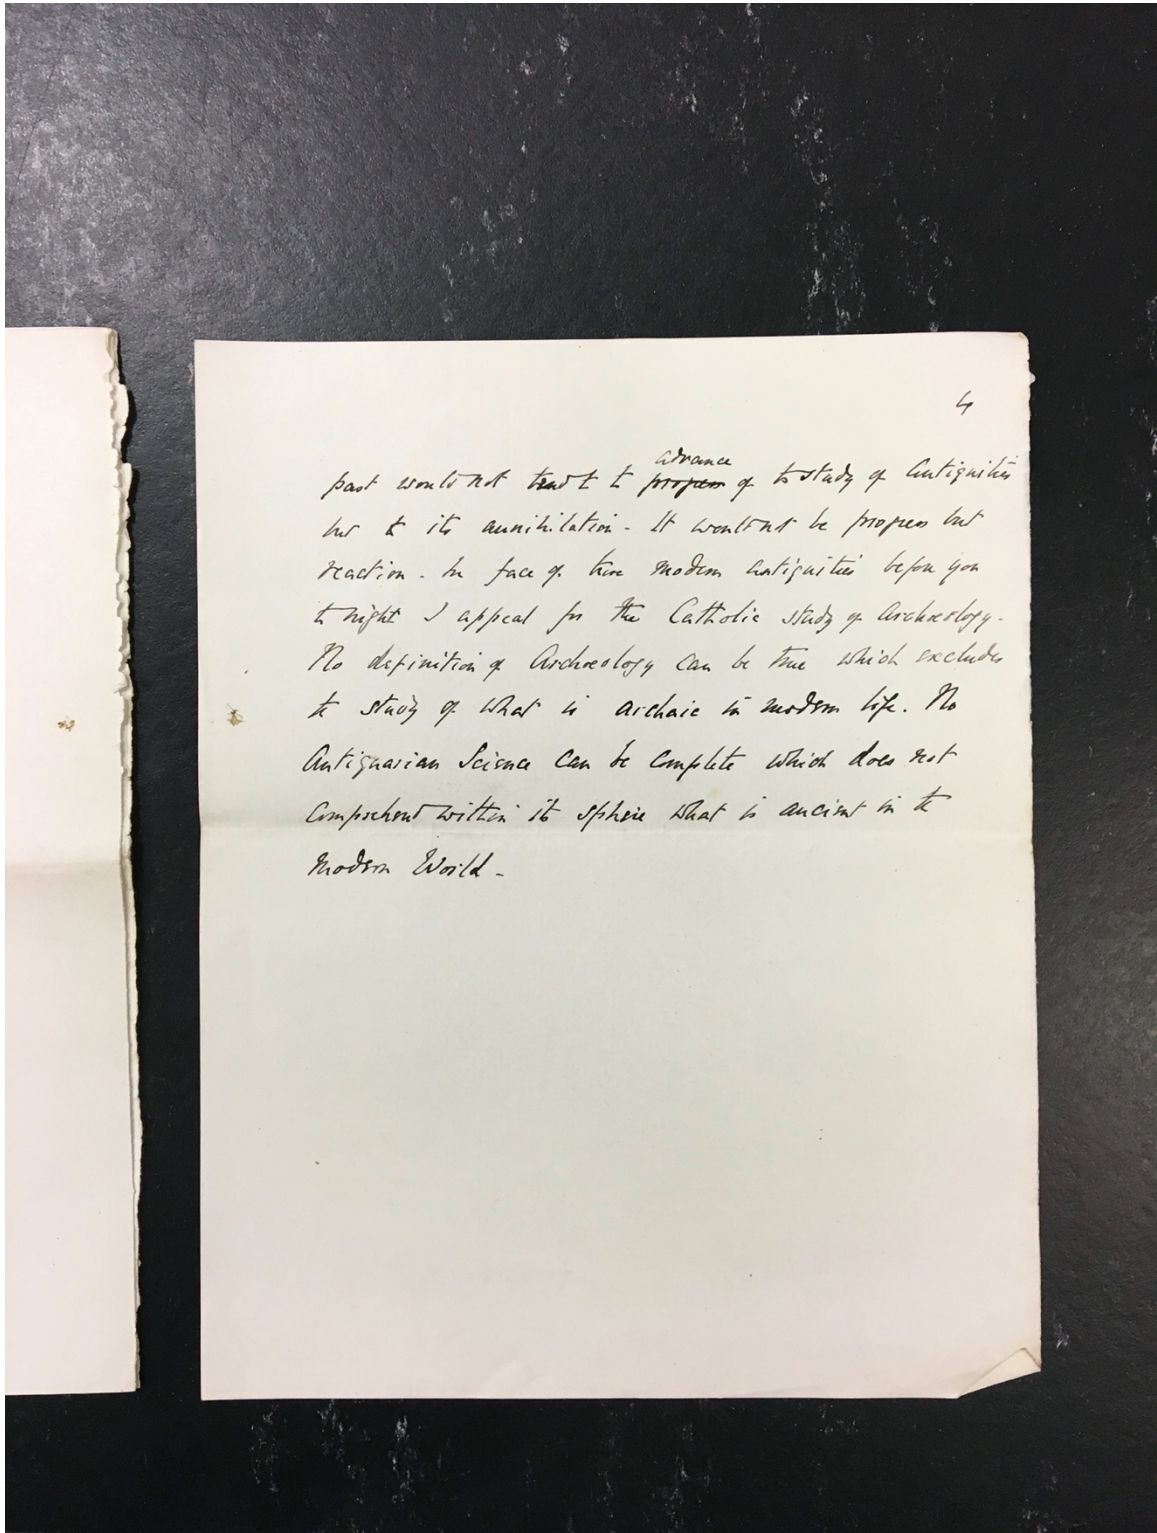 4
advance
past would not tend to to progress of the study of Antiquities
but to its annihilation - It would not be progress but
reaction - In face of these modern antiquities before you
to night I appeal for the Catholic study of Archæology -
No definition of Archæology can be true which excludes
the study of what is archaic in modern life. No
Antiquarian Science can be complete which does not
comprehend within its sphere what is ancient in the
Modern World -